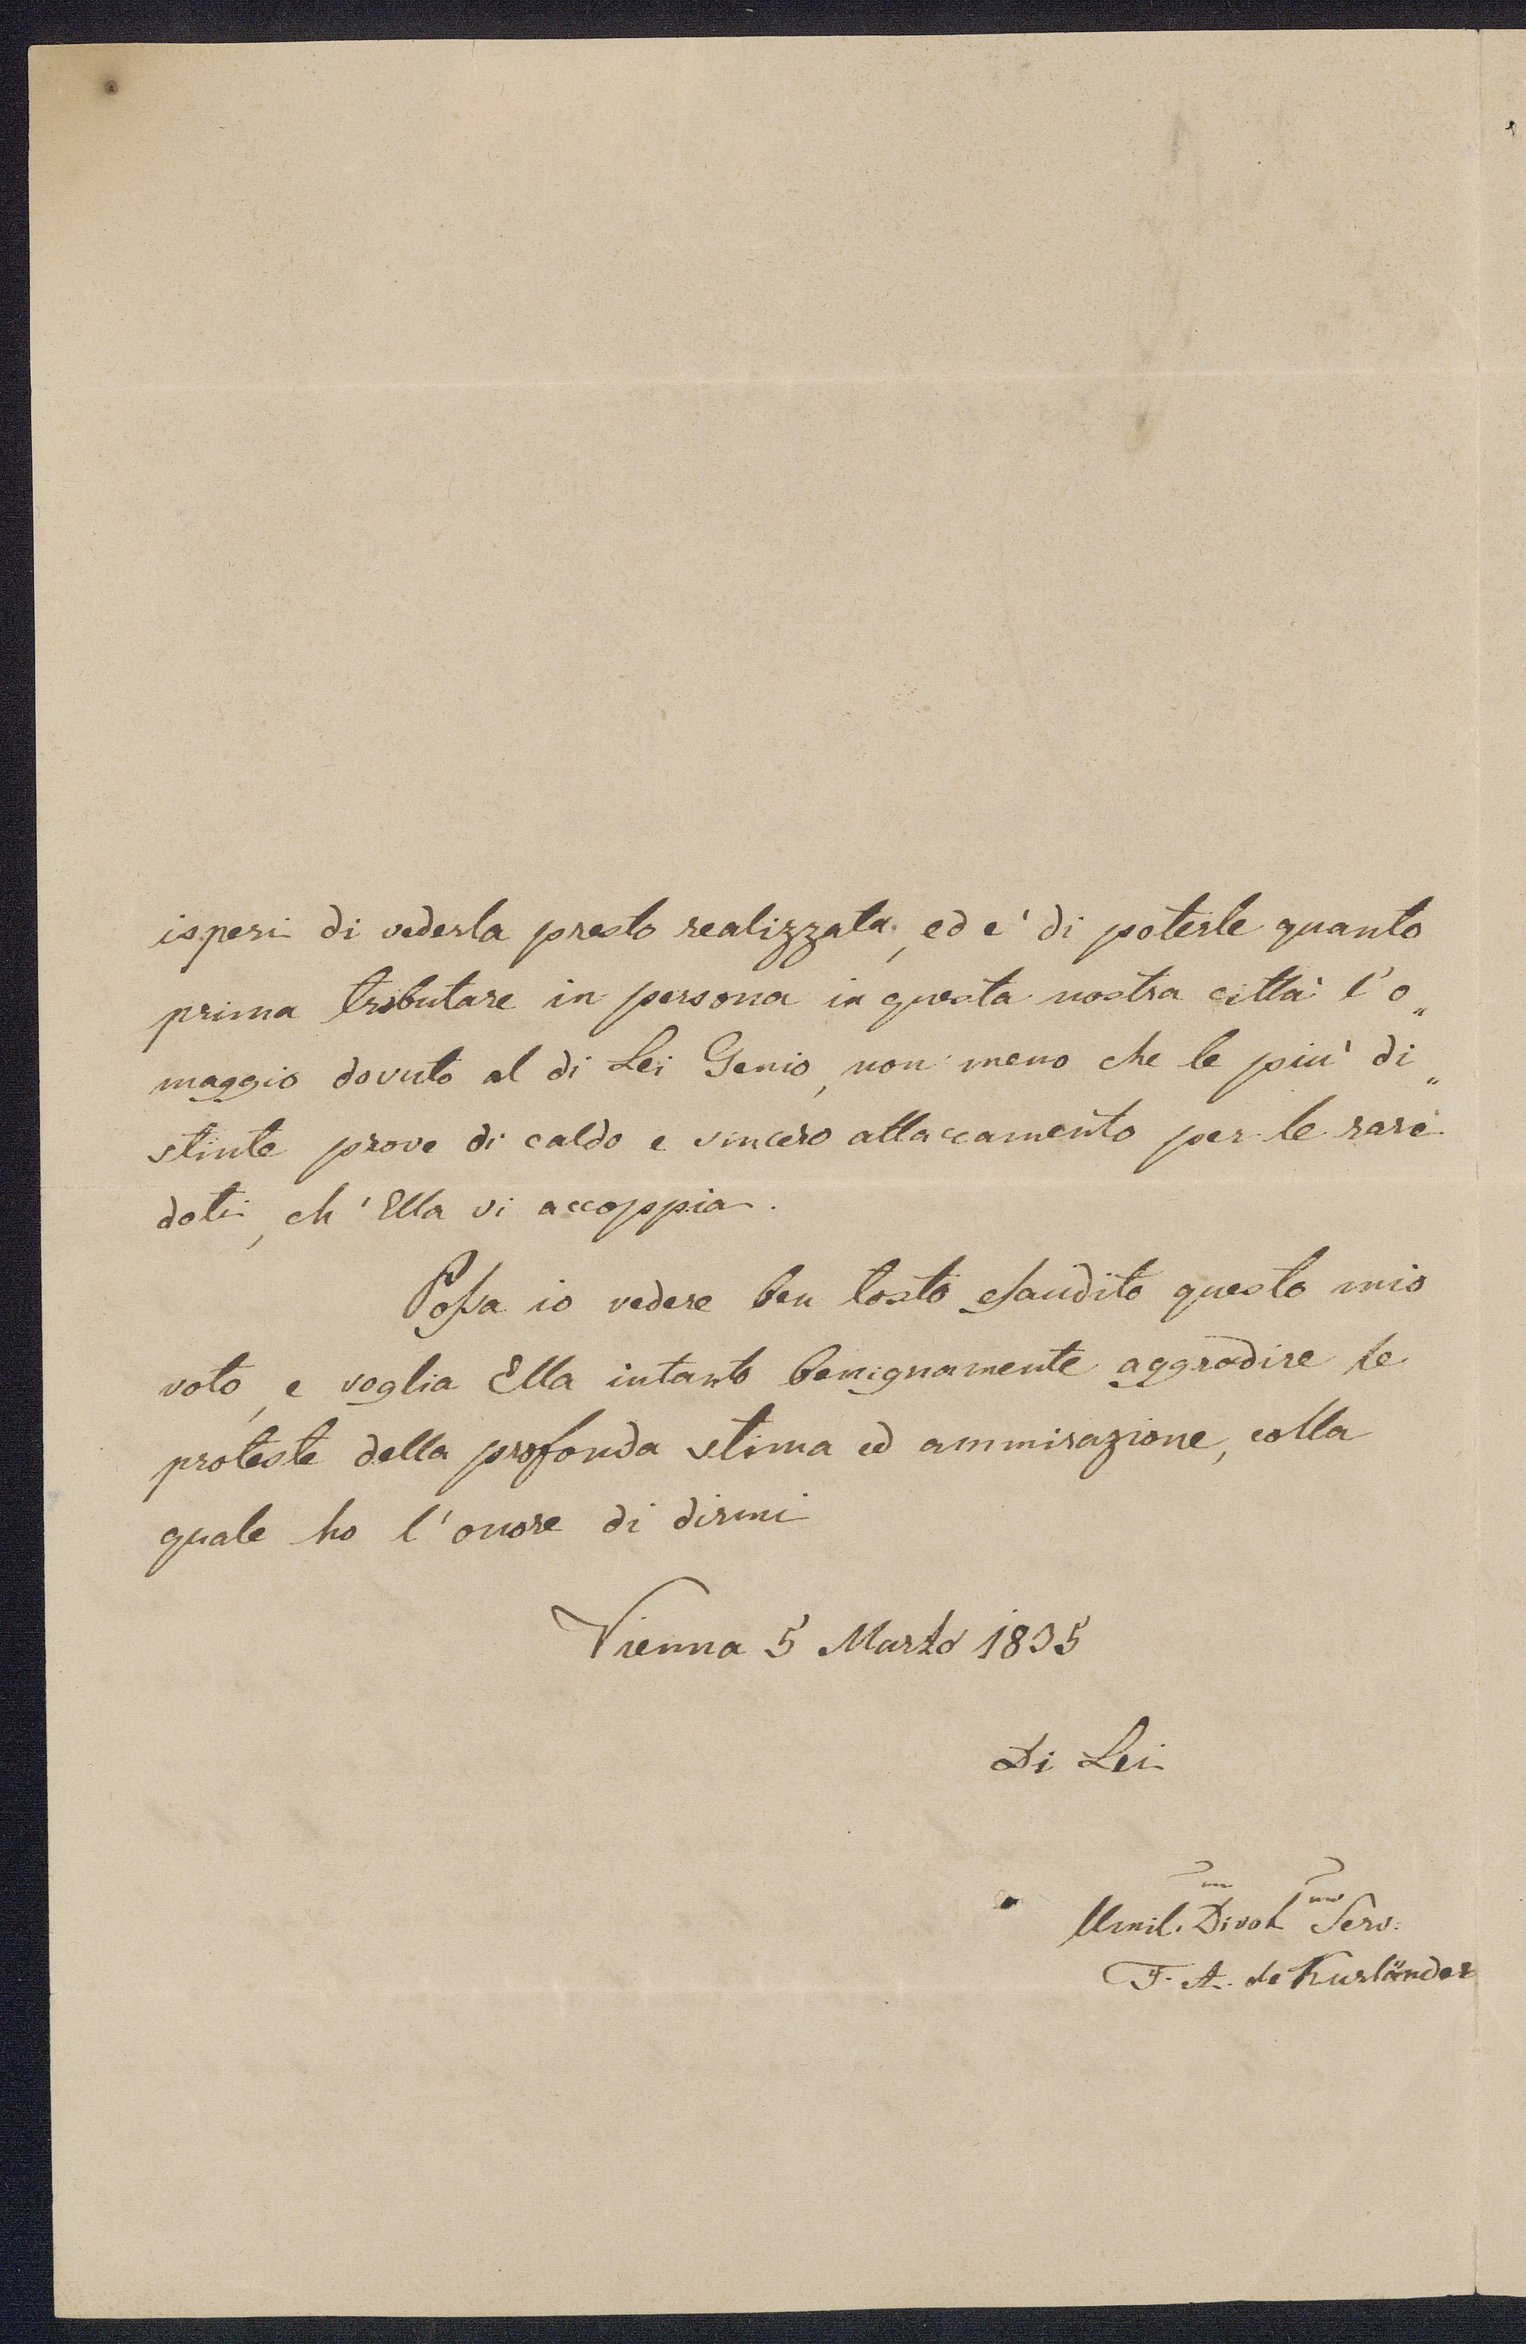 isperi di vederla presto realizzata, ed e' di poterle quanto
prima tributare in persona in questa nostra citta' l'o„
maggio dovuto al di Lei Genio, non meno che le piu' di„
stinte prove di caldo e sincero attaccamento per le rare
doti, ch'Ella vi accoppia.
Poſsa io vedere ben tosto eſaudito questo mio
voto, e voglia Ella intanto benignamente aggradire le
proteste della profonda stima ed ammirazione, colla
quale ho l'onore di dirmi
Vienna 5 Marzo 1835
Di Lei
Umil.mo Divot.mo Serv:
F. A. de Kurländer